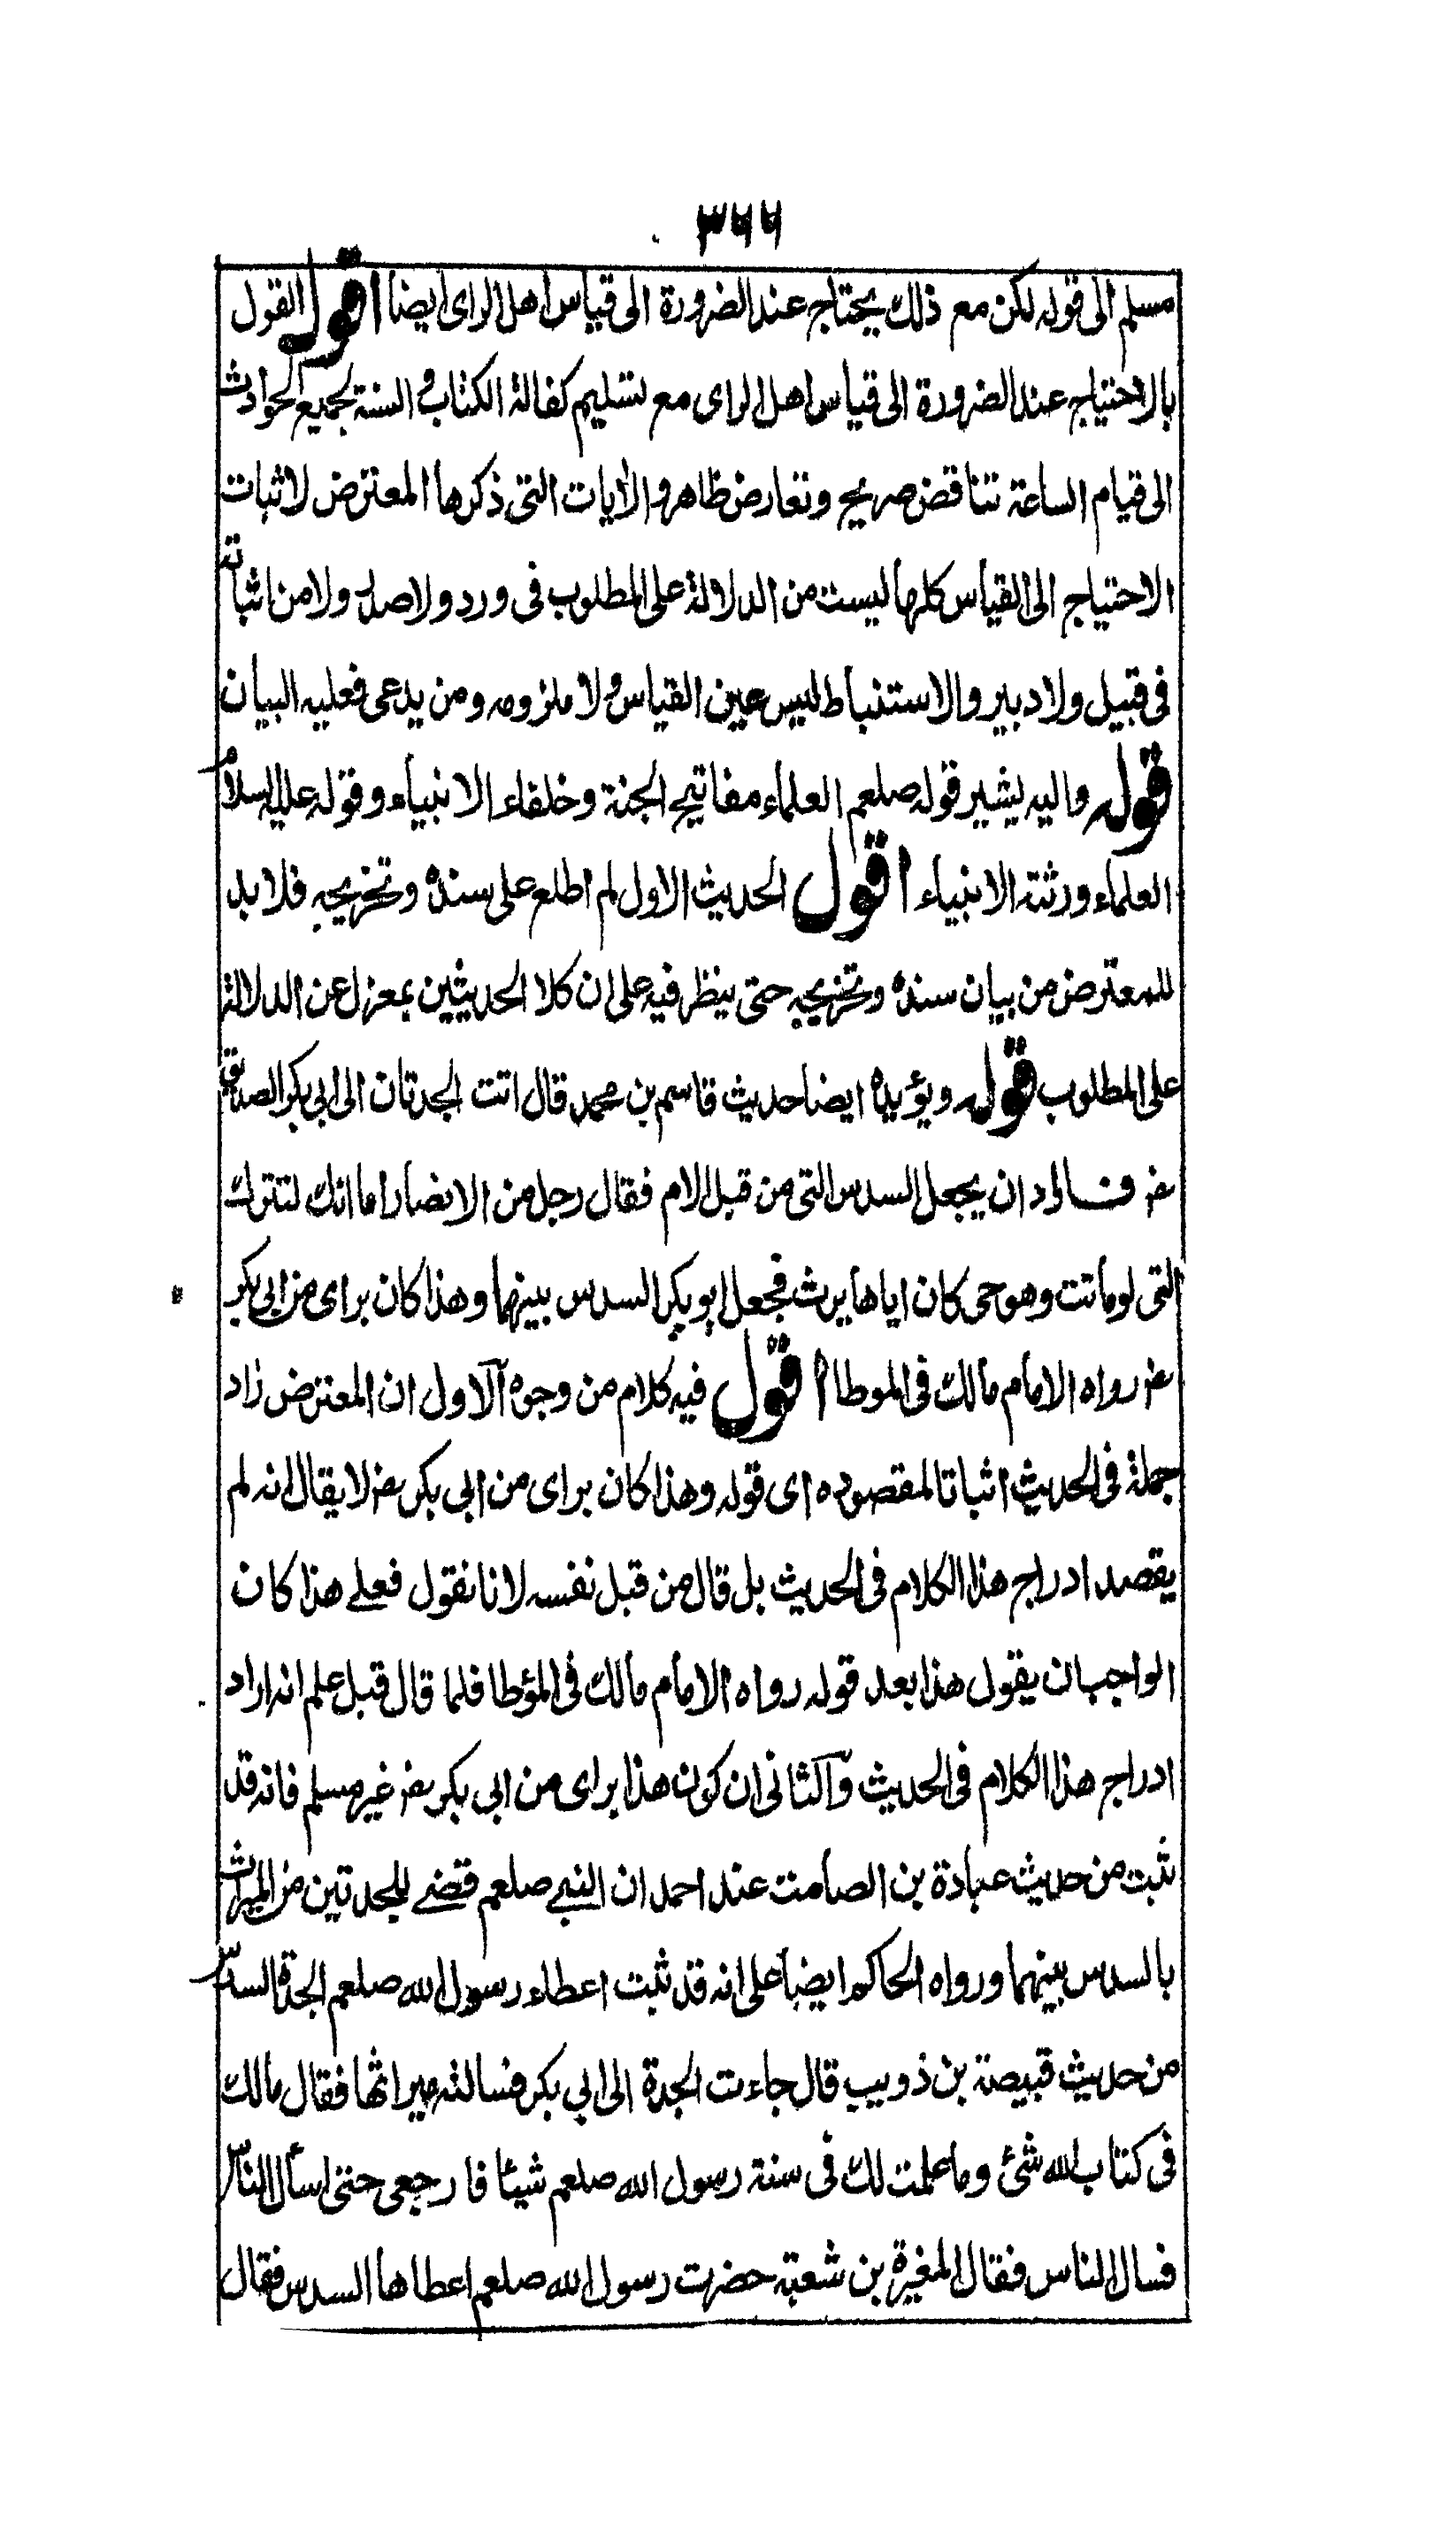 ٣٦٦
مسلم الى قوله لكن مع ذلك يحتاج عند الضرورة الى قياس اهل الراى ايضا اقول القول
بالاحتياج عند الضرورة الى قياس اهل الراى مع تسليم كفالة الكتاب و السنة لجميع الحوادث
الى قيام الساعة تناقض صريح وتعارض ظاهر و الايات التى ذكرها المعترض لاثبات
الاحتياج الى القياس كلها ليست من الدلالة على المطلوب فى ورد ولا صدر ولا من اثباته
فى قبيل ولا دبير والاستنباط ليس عين القياس ولا ملزومه ومن يدعى فعليه البيان
قوله واليه يشير قوله صلعم العلماء مفاتيح الجنة وخلفاء الانبياء وقوله عليه السلام
العلماء ورثته الانبياء اقول الحديث الاول لم اطلع على سنده وتخريجه فلا بد
للمعترض من بيان سنده وتخريجه حتى ينظر فيه على ان كلا الحديثين بمعزل عن الدلالة
على المطلوب قوله ويؤيده ايضا حديث قاسم بن محمد قال اتت الجدتان الى ابى بكر الصديق
رض فاراد ان يجعل السدس التى من قبل الام فقال رجل من الانصار اما انك لتترك
التى لو ماتت وهو حى كان اياها يرث فجعل ابو بكر السدس بينهما وهذا كان براى من ابى بكر
رض رواه الامام مالك فى الموطا اقول فيه كلام من وجوه آلاول ان المعترض زاد
جملة فى الحديث اثباتا لمقصوده اى قوله وهذا كان براى من ابى بكر رض لا يقال انه لم
يقصد ادراج هذا الكلام فى الحديث بل قال من قبل نفسه لانا نقول فعلے هذا كان
الواجب ان يقول هذا بعد قوله رواه الامام مالك فى المؤطا فلما قال قبل علم انه اراد
ادراج هذا الكلام فى الحديث وآلثانى ان كون هذا براى من ابى بكر رض غير مسلم فانه قد
ثبت من حديث عبادة بن الصامت عند احمد ان النبے صلعم قضے للجدتين من الميراث
بالسدس بينهما ورواه الحاكم ايضا على انه قد ثبت اعطاء رسول الله صلعم الجدة السدس
من حديث قبيصة بن ذويب قال جاءت الجدة الى ابى بكر فسالته ميراثها فقال مالك
فى كتاب الله شئ وما علمت لك فى سنة رسول الله صلعم شيئا فارجعى حتى اسأل الناس
فسال الناس فقال المغيرة بن شعبة حضرت رسول الله صلعم اعطاها السدس فقال